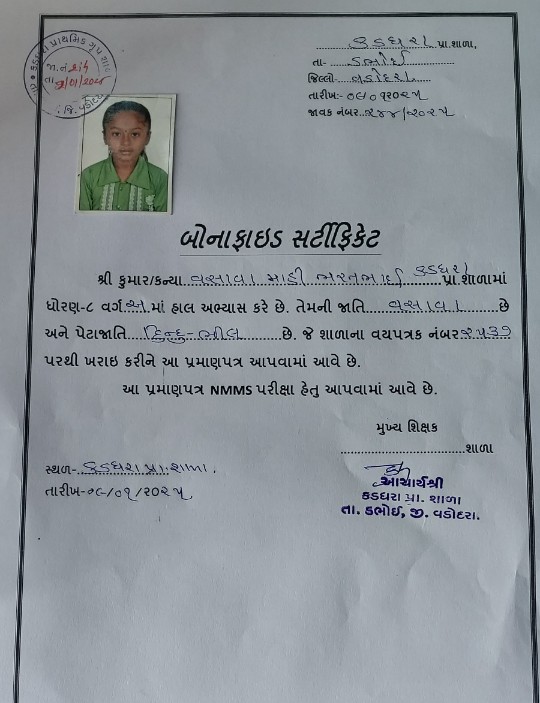 કડધરા પ્રા.શાળા,
તા- ડભોઈ
જિલ્લો- વડોદરા
તારીખ:- ૦૯/૦૧/૨૦૨૫
જાવક નંબર..૨૪૪/૨૦૨૫
બોનાફાઇડ સર્ટીફિકેટ
શ્રી કુમાર/કન્યા વસાવા માહી ભરતભાઈ કડધરા પ્રા.શાળામાં
ધોરણ-૮ વર્ગ અ માં હાલ અભ્યાસ કરે છે. તેમની જાતિ વસાવા છે
અને પેટાજાતિ હિન્દુ-ભીલ છે. જે શાળાના વયપત્રક નંબર ૨૫૩૭
પરથી ખરાઇ કરીને આ પ્રમાણપત્ર આપવામાં આવે છે.
આ પ્રમાણપત્ર NMMS પરીક્ષા હેતુ આપવામાં આવે છે.
મુખ્ય શિક્ષક
શાળા
સ્થળ- કડધરા પ્રા. શાળા.
તારીખ-૦૯/૦૧/૨૦૨૫
આચાર્યશ્રી
કડધરા પ્રા. શાળા
તા. ડભોઈ, જી. વડોદરા.